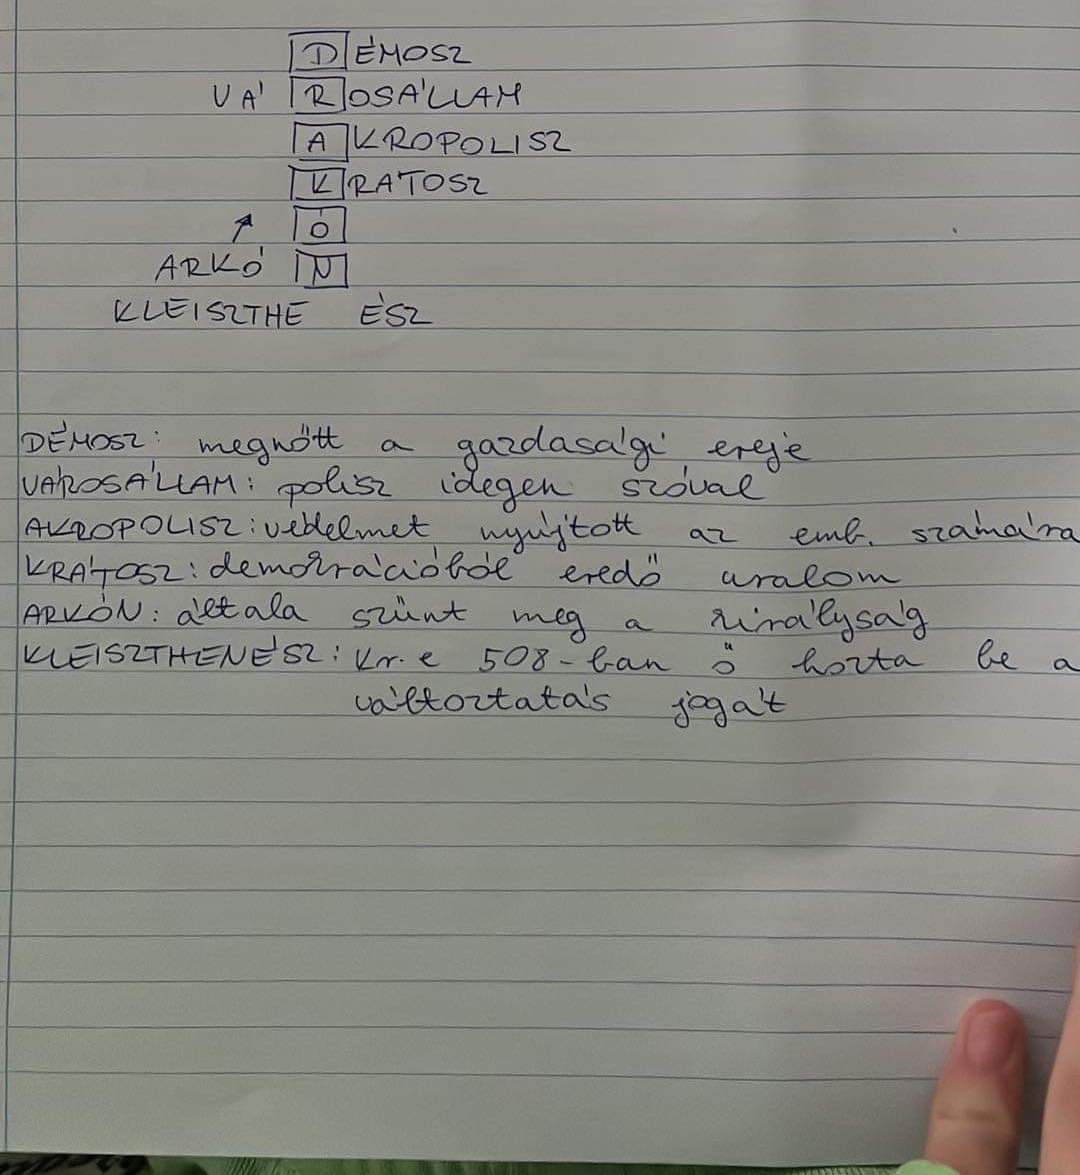 DÉMOSZ
VÁROSÁLLAM
AKROPOLISZ
KRATOSZ
Ó
ARKÓN
KLEISZTHE ÉSZ
DÉMOSZ: megnőtt a gazdasági ereje
VÁROSÁLLAM: polisz idegen szóval
AKROPOLISZ: védelmet nyújtott az emb. számára
KRATOSZ: demokrációból eredő uralom
ARKÓN: által a szűnt meg a királyság
KLEISZTHENÉSZ: Kr. e 508-ban ő hozta be a
változtatás jogát